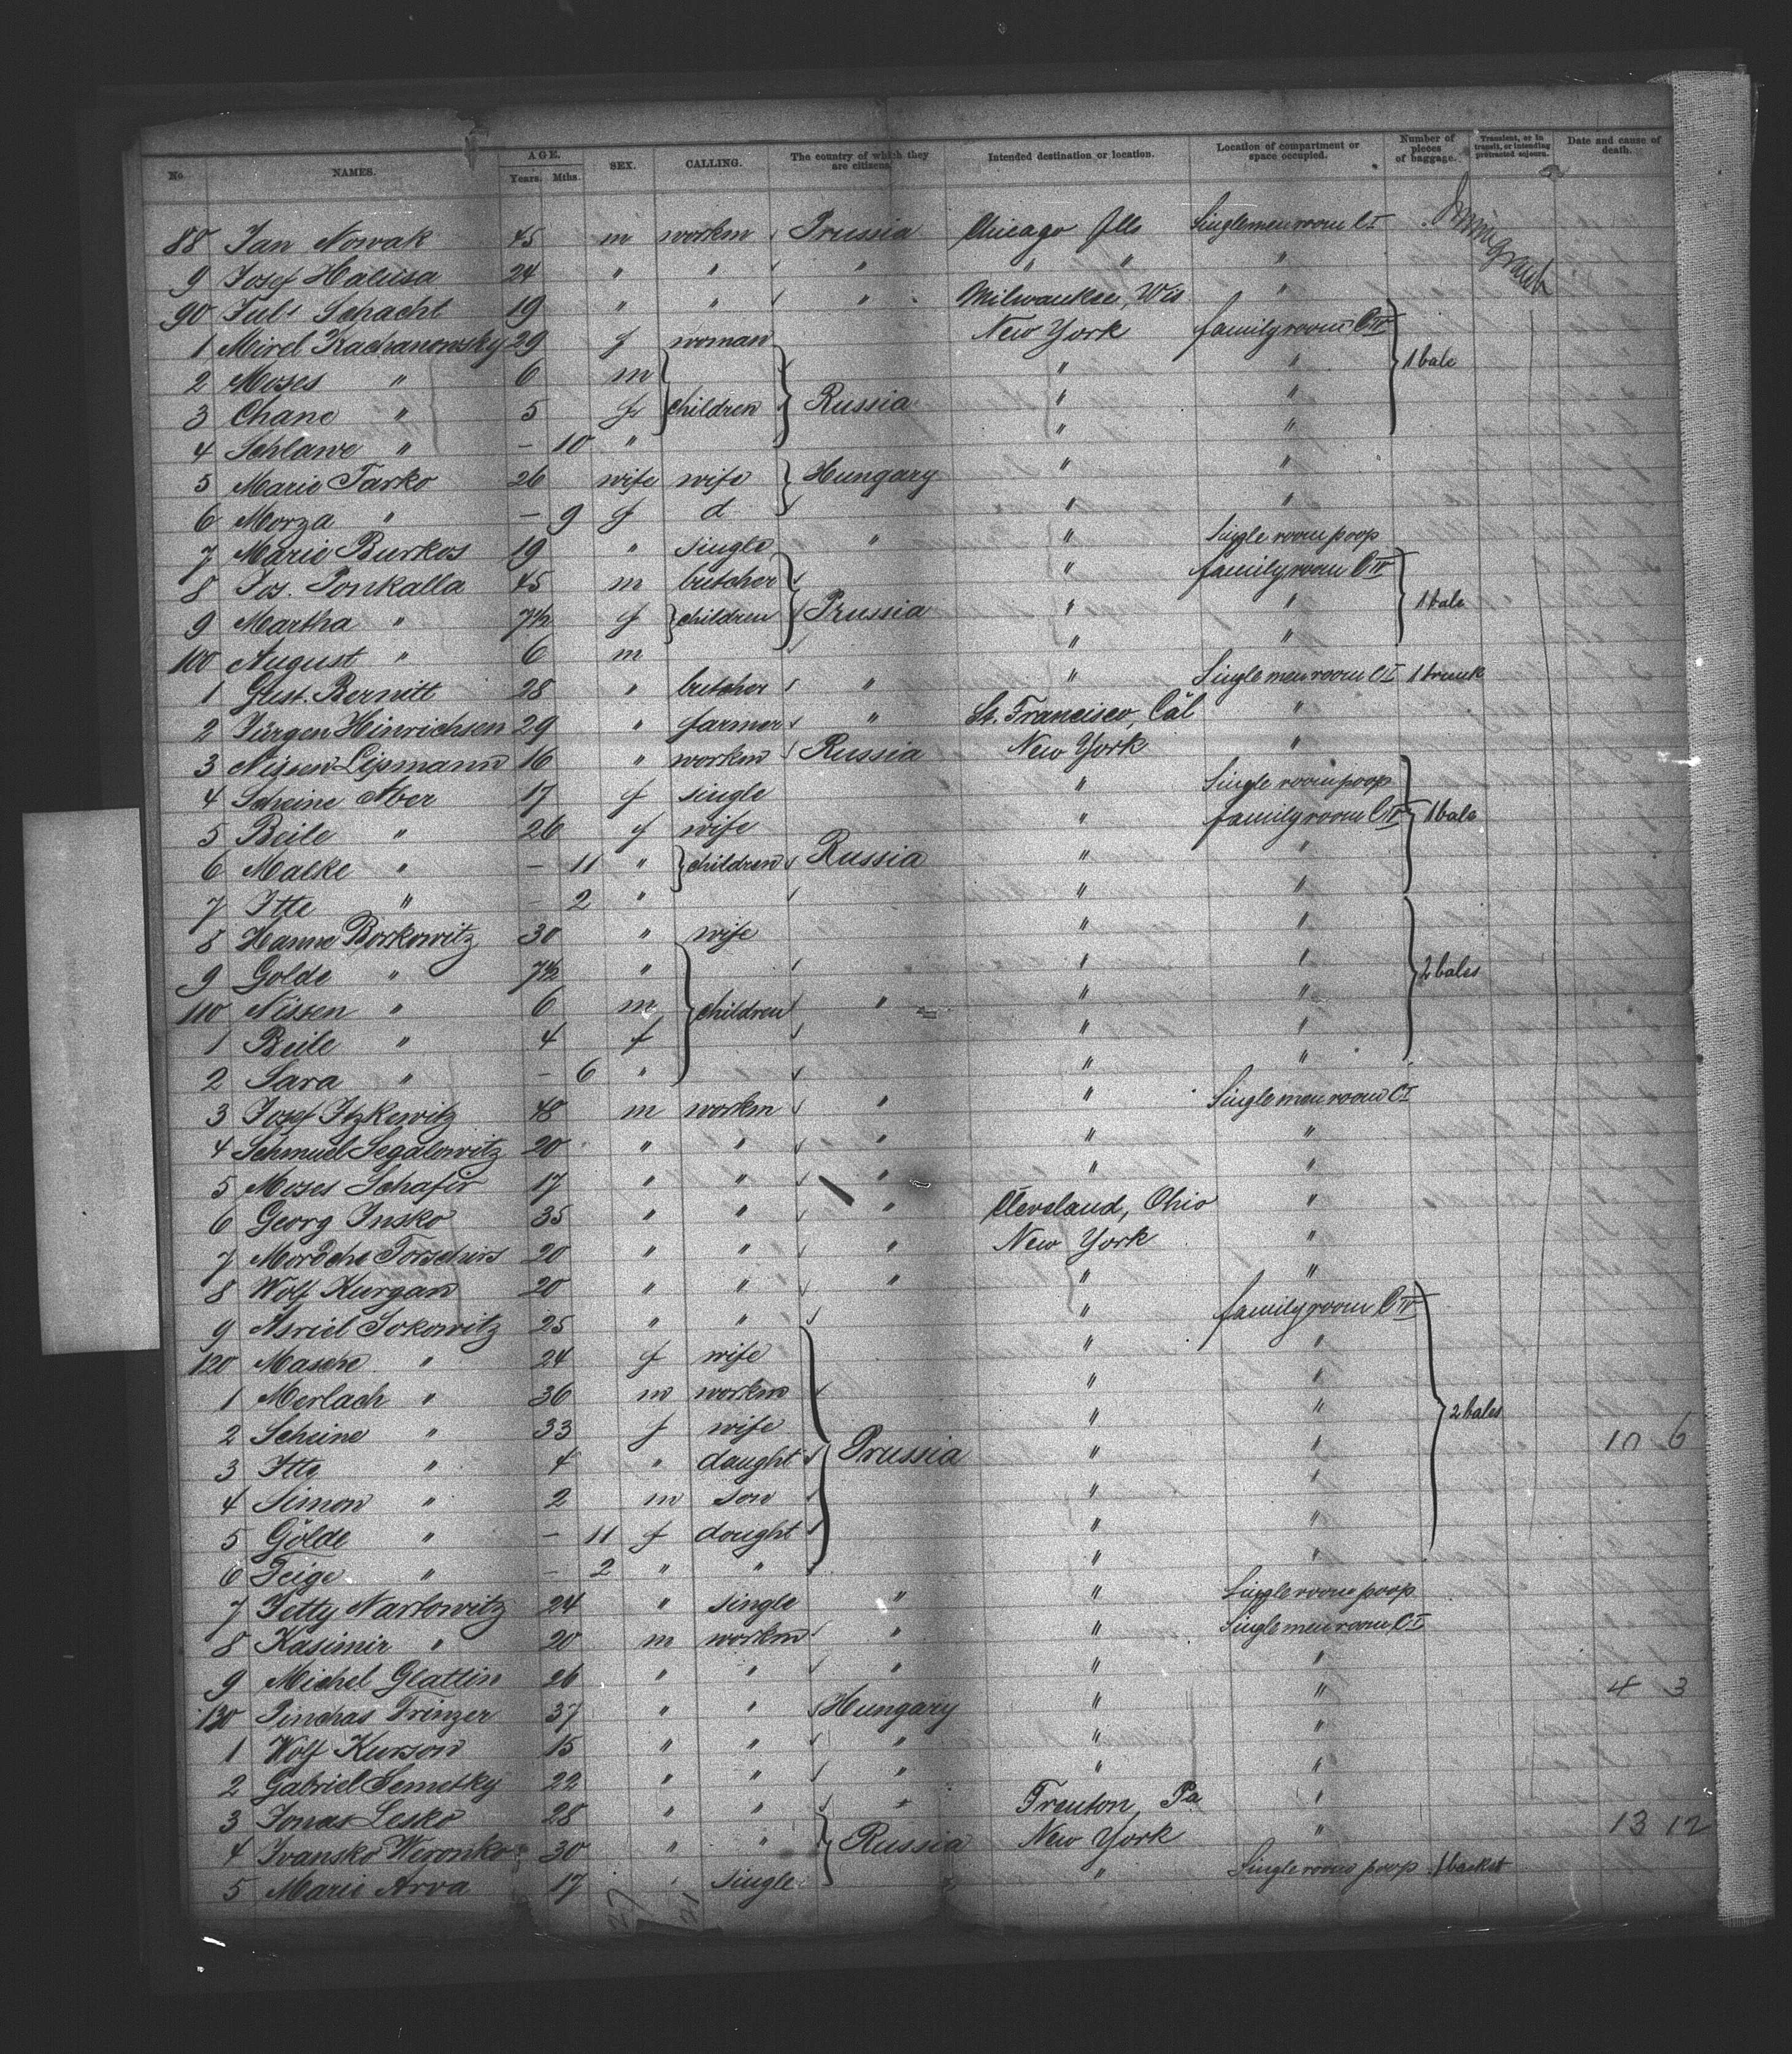 No. NAMES. AGE. Years. Mths. SEX. CALLING. The country of which they are citizens. Intended destination or location. Location of compartment or space occupied. Number of pieces of baggage. Transient, or in transit, or intending protracted sojourn. Date and cause of death.
88 Jan Nowak 45 m workm Prussia Chicago Ills Singlemenroom CI
9 Josef Halusa 24 " " " " " "
90 Juls Schacht 19 " " " Milwaukee, Wis "
1 Mirel Kachanowsky 29 f woman New York familyroom CIV
2 Moses " 6 m " " 1 bale
3 Chane " 5 f children Russia " "
4 Schlawe " – 10 " " "
5 Marie Tarko 26 wife wife Hungary " "
6 Morza " – 9 f d " "
7 Marie Burkos 19 " single " " Single room poop
8 Jos. Ponkalla 45 m butcher " familyroom CIV
9 Martha " 7½ f children Prussia " " 1 bale
100 August " 6 m " "
1 Gust. Bernitt 28 " butcher " " Single men room CI 1 trunk
2 Jürgen Hinrichsen 29 " farmer " St. Francisco, Cal "
3 Nissen Lipmann 16 " workm Russia New York "
4 Scheine Aber 17 f single " Single room poop
5 Beile " 26 f wife " family room CIV 1 bale
6 Malke " – 11 " children Russia " "
7 Itte " – 2 " " "
8 Hanne Borkowitz 30 " wife " "
9 Golde " 7½ " " " 2 bales
110 Nissen " 6 m children " " "
1 Beile " 4 f " "
2 Sara " – 6 " " "
3 Josef Itzkewitz 48 m workm " " Single men room CI
4 Schmuel Segalowitz 20 " " " " "
5 Moses Schafir 17 " " " " "
6 Georg Insko 35 " " " Cleveland, Ohio "
7 Mordche Torschirs 20 " " " New York "
8 Wolf Kurgan 20 " " " " "
9 Asriel Sokowitz 25 " " " family room CIV
120 Masche " 24 f wife " "
1 Merlach " 36 m workm " "
2 Scheine " 33 f wife " " 2 bales
3 Itte " 4 " daught Prussia " " 10 6
4 Simon " 2 m son " "
5 Golde " – 11 f daught " "
6 Feige " – 2 " " " "
7 Jetty Narkowitz 24 " single " " Single room poop
8 Kasimir " 20 m workm " " Single men room CI
9 Michel Glattin 26 " " " " "
130 Pinchas Prinzer 37 " " Hungary " " 4 3
1 Wolf Kurson 15 " " " " "
2 Gabriel Semetky 22 " " " " "
3 Jonas Lesko 28 " " " Trenton, Pa "
4 Ivansko Weronko 30 " " Russia New York " 13 12
5 Marie Arva 17 " single " Single room poop 1 basket
27 21